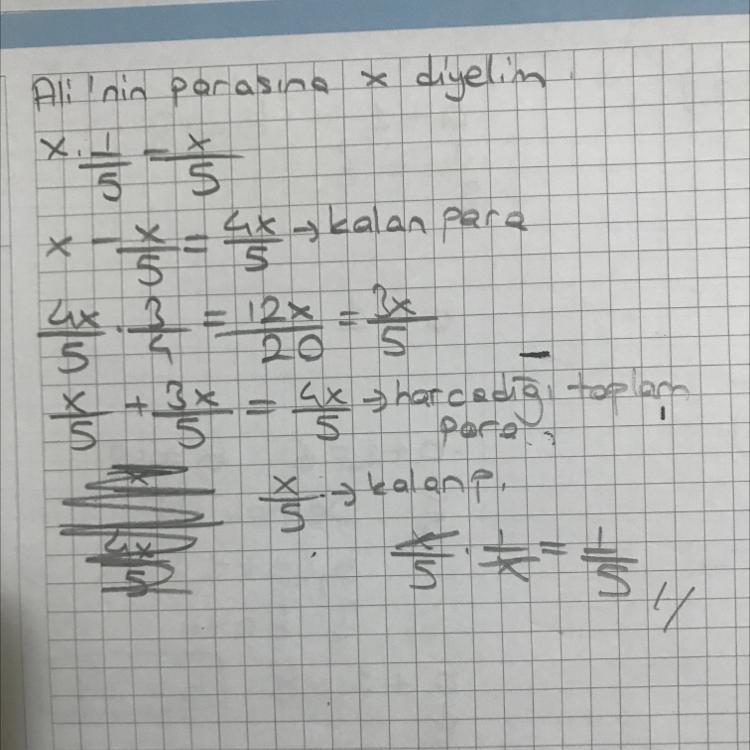 Ali'nin parasına x diyelim
x . 1/5 = x/5
x - x/5 = 4x/5 → kalan para
4x/5 . 3/4 = 12x/20 = 3x/5
x/5 + 3x/5 = 4x/5 → harcadığı toplam
para
x/5 → kalan p.
x/5 . 1/x = 1/5 //